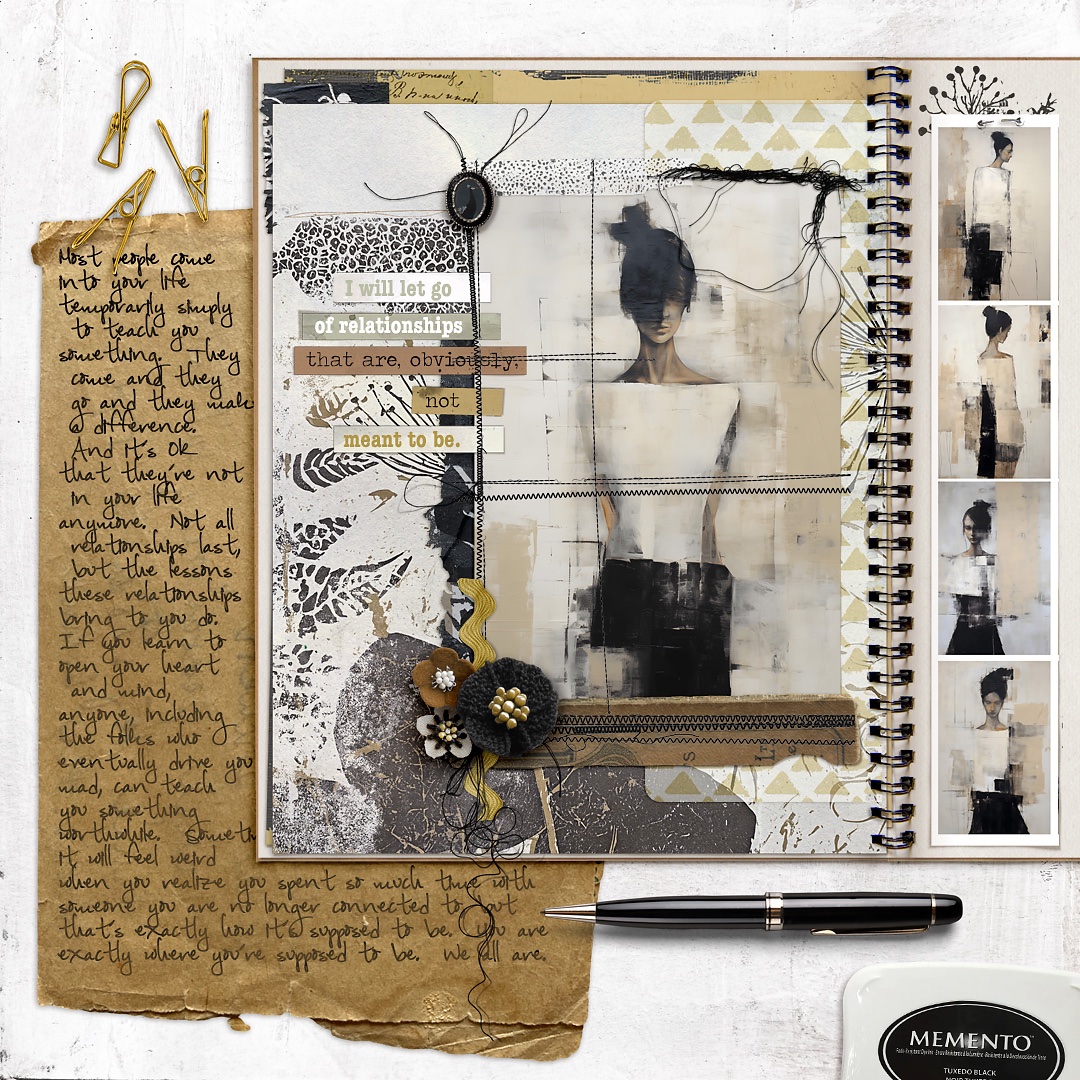 Most people come
into your life
temporarily simply
to teach you
something. They
come and they
go and they mak
a difference.
And it's ok
that they're not
in your life
anymore. Not all
relationships last,
but the lessons
these relationships
bring to you do.
If you learn to
open your heart
and mind,
anyone, including
the folks who
eventually drive you
mad, can teach
you something
worthwhile. Someth
it will feel weird
when you realize you spent so much time with
someone you are no longer connected to but
that's exactly how it's supposed to be. You are
exactly where you're supposed to be. We all are.
I will let go
of relationships
that are, obviously,
not
meant to be.
MEMENTO
TUXEDO BLACK